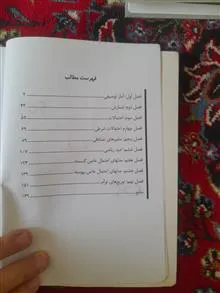 فهرست مطالب
فصل اول: آمار توصیفی ۷
فصل دوم: شمارش ۳۳
فصل سوم: احتمالات ۵۵
فصل چهارم: احتمالات شرطی ۶۹
فصل پنجم: متغیرهای تصادفی ۸۹
فصل ششم: امید ریاضی ۱۰۷
فصل هفتم: مدلهای احتمال خاص گسسته ۱۲۳
فصل هشتم: مدلهای احتمال خاص پیوسته ۱۳۹
فصل نهم: توزیع‌های توأم ۱۵۱
منابع ۱۶۹